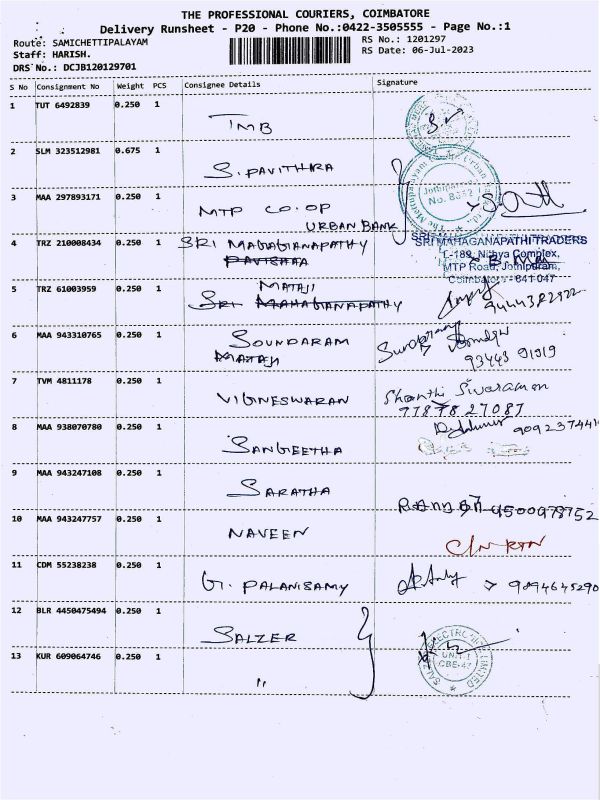 THE PROFESSIONAL COURIERS, COIMBATORE
Delivery Runsheet - P20 - Phone No.:0422-3505555 - Page No.:1
Route: SAMICHETTIPALAYAM
Staff: HARISH.
DRS No.: DCJB120129701
RS No.: 1201297
RS Date: 06-Jul-2023
S No Consignment No Weight PCS Consignee Details Signature
1 TUT 6492839 0.250 1 TMB
2 SLM 323512981 0.675 1 S. PAVITHRA
Jothipuram
No. 8032
3 MAA 297893171 0.250 1 MTP CO-OP
URBAN BANK
4 TRZ 210008434 0.250 1 SRI MAGAGIANAPATHY
PAVITHRA
SRI MAHAGANAPATHI TRADERS
L-189, Nithya Complex,
MTP Road, Jothipuram,
Coimbatore - 641 047
5 TRZ 61003959 0.250 1 MATAJI
SRI MAHAGIANAPATHY
9444382922
6 MAA 943310765 0.250 1 SOUNDARAM
MATAJI
93443 91919
7 TVM 4811178 0.250 1 VIGNESWARAN Shanthi Sivaraman
77878 27087
8 MAA 938070780 0.250 1 SANGEETHA
9 MAA 943247108 0.250 1 SARATHA
10 MAA 943247757 0.250 1 NAVEEN
11 CDM 55238238 0.250 1 G. PALANISAMY 9894645290
12 BLR 4450475494 0.250 1 SALZER
SALZER ELECTRONICS LIMITED
UNIT-I
CBE-47
13 KUR 609064746 0.250 1 "